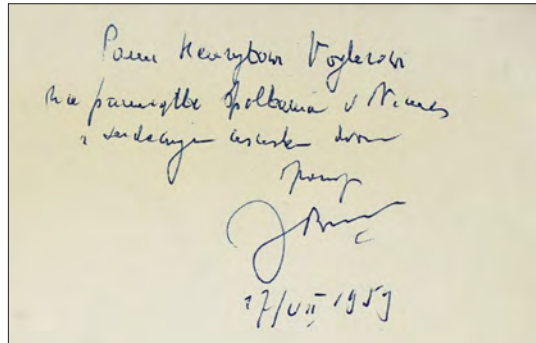 Panu Henrykowi Voglerowi
na pamiątkę spotkania w
z serdecznym uściskiem dłoni
17/VII 1959